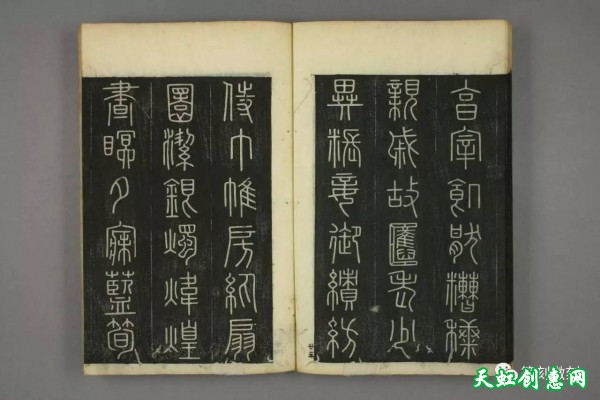 亨宰飢猒糟糠
親戚故舊老少
異粻妾御績紡
侍巾帷房紈扇
圓潔銀燭煒煌
晝瞑夕寐藍筍
廿五
天虹创惠网